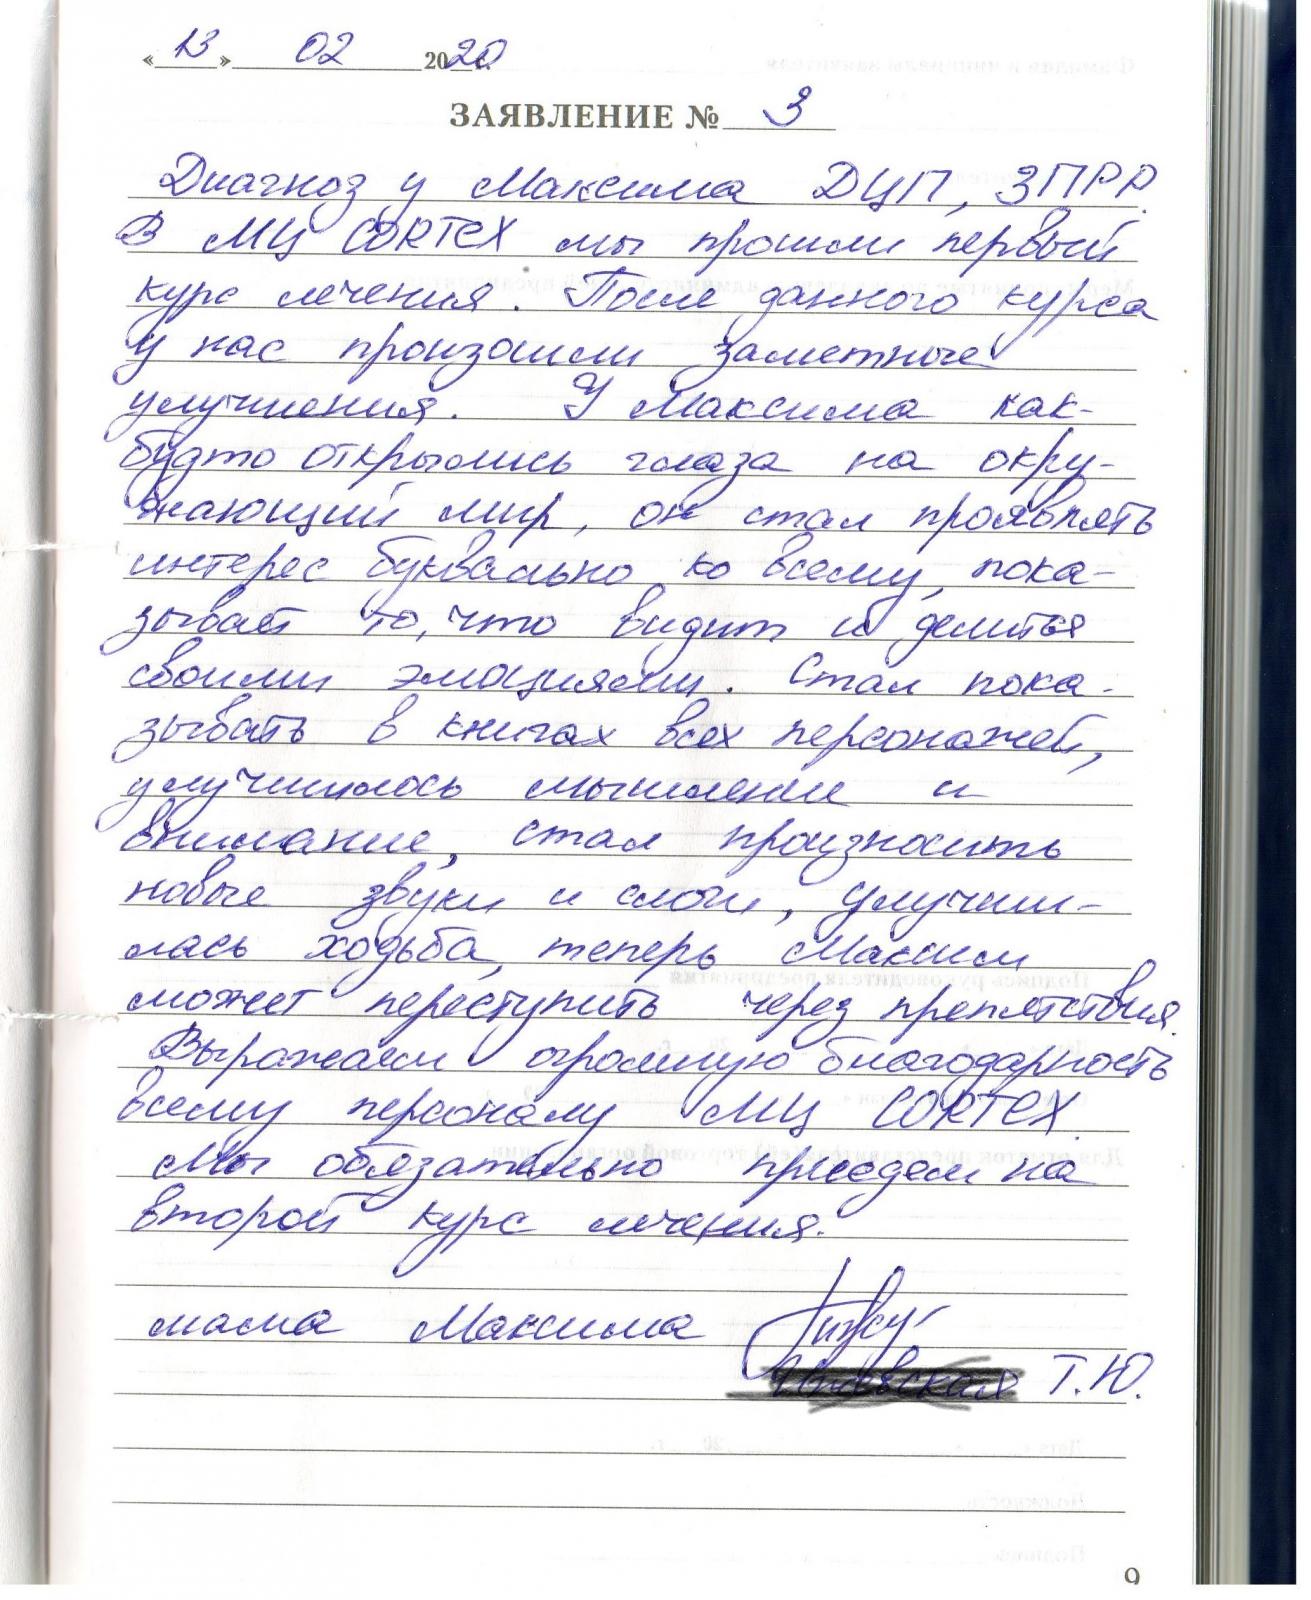 «13» 02 2020
ЗАЯВЛЕНИЕ № 3
Диагноз у Максима ДЦП, ЗПРР.
В МЦ CORTEX мы прошли первый
курс лечения. После данного курса
у нас произошли заметные
улучшения. У Максима как-
будто открылись глаза на окру-
жающий мир, он стал проявлять
интерес буквально ко всему, пока-
зывает то, что видит и делиться
своими эмоциями. Стал пока-
зывать в книгах всех персонажей,
улучшилось мышление и
внимание, стал произносить
новые звуки и слоги, улучши-
лась ходьба, теперь Максим
может переступить через препятствия.
Выражаем огромную благодарность
всему персоналу МЦ CORTEX.
Мы обязательно приедем на
второй курс лечения.
мама Максима
Т.Ю.
9